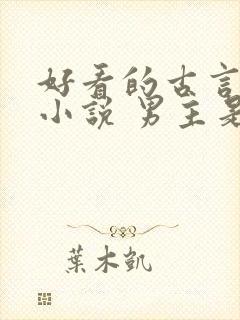 好看的古言
小說 男主是
葉木凱